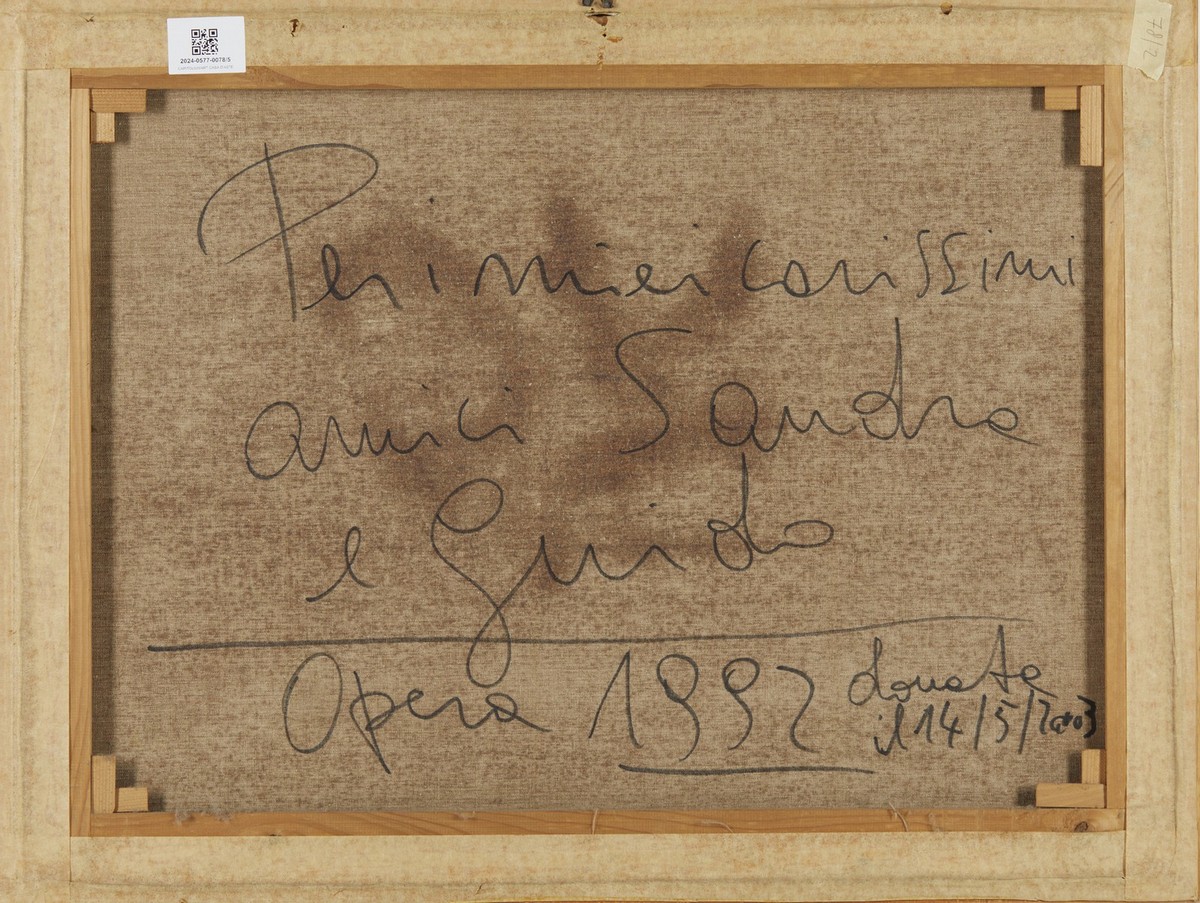 2024-0577-0078/5
78/2
Per i miei carissimi
amici Sandra
e Guido
Opera 1992 donata
il 14/5/2003